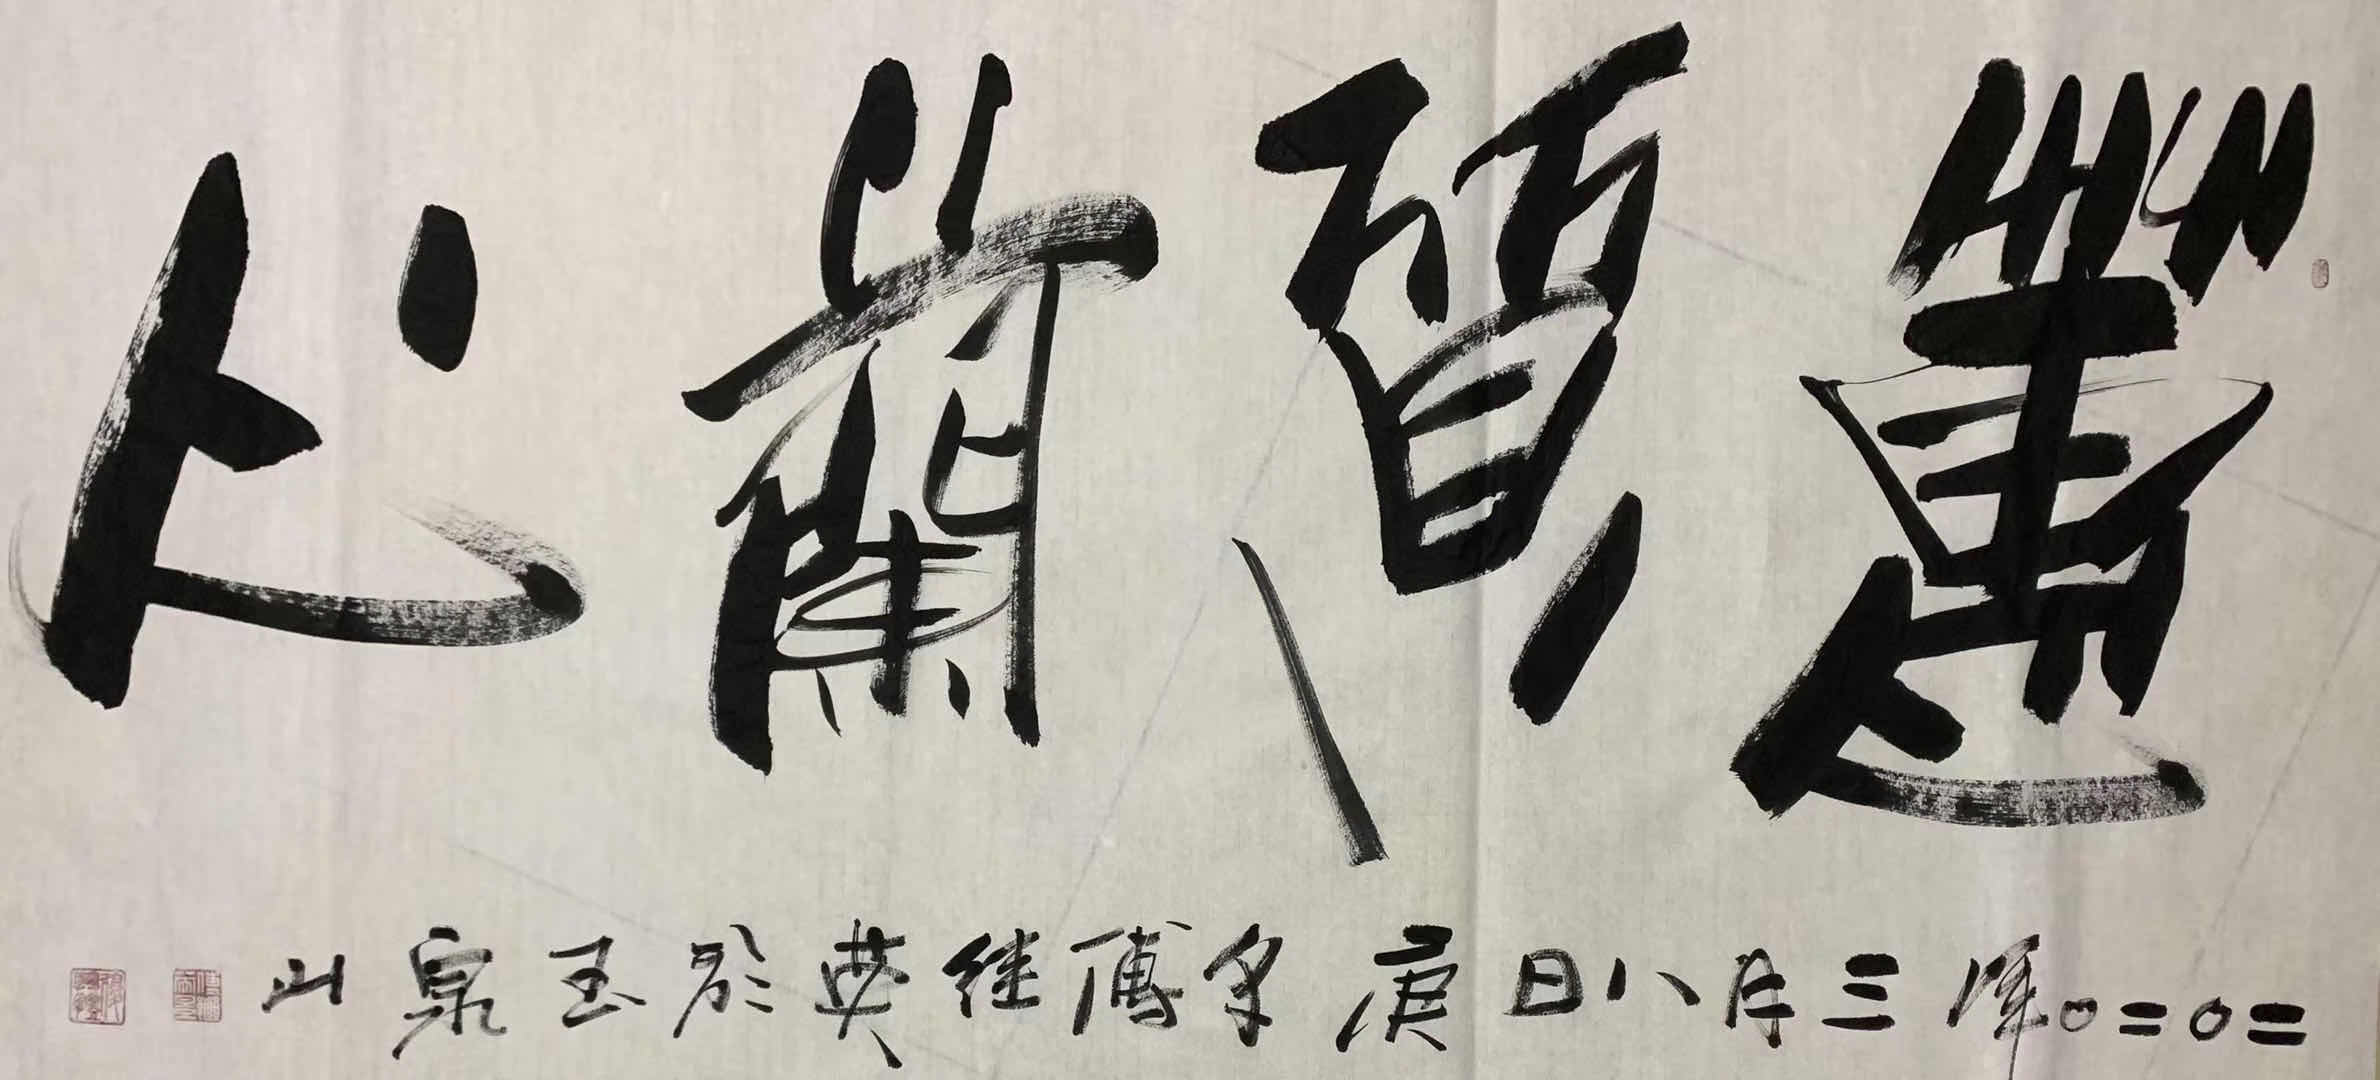 蕙質蘭心
二〇二〇年三月八日庚子傅继英於玉泉山